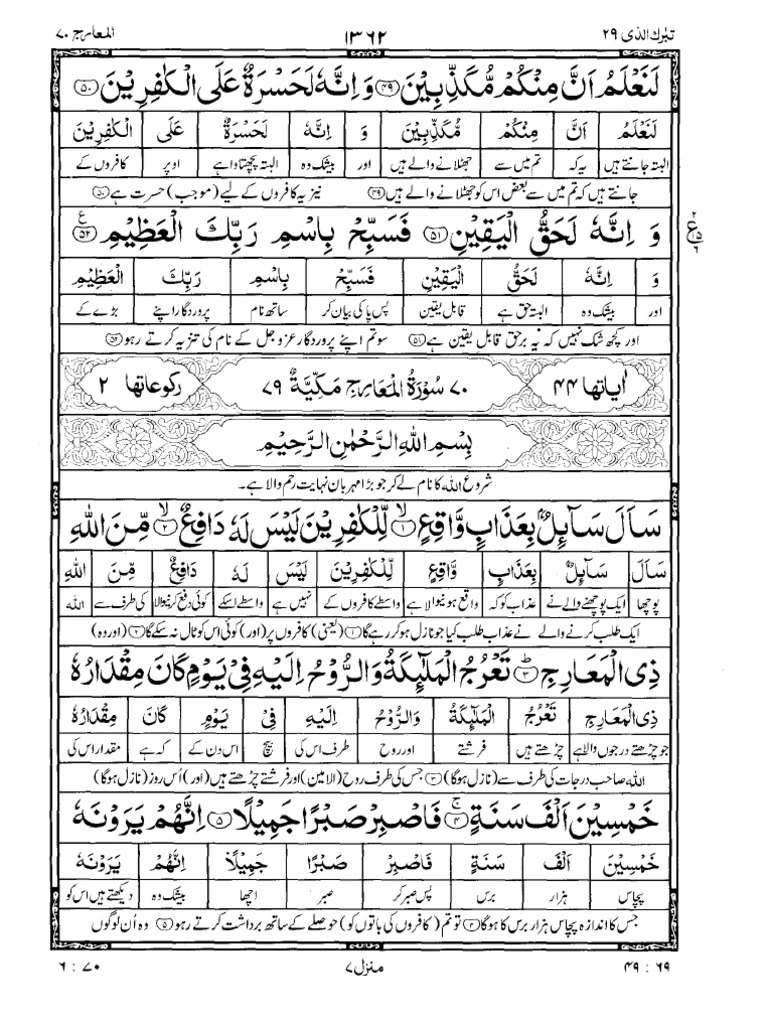 تبٰرك الذى ٢٩ ١٣٦٢ المعارج ٧٠
لَنَعْلَمُ اَنَّ مِنْكُمْ مُّكَذِّبِيْنَ ﴿٤٩﴾ وَ اِنَّهٗ لَحَسْرَةٌ عَلَى الْكٰفِرِيْنَ ﴿٥٠﴾
لَنَعْلَمُ اَنَّ مِنْكُمْ مُّكَذِّبِيْنَ وَ اِنَّهٗ لَحَسْرَةٌ عَلَى الْكٰفِرِيْنَ
البتہ جانتے ہیں یہ کہ تم میں سے جھٹلانے والے ہیں اور بیشک وہ البتہ پچھتاوا ہے اوپر کافروں کے
جانتے ہیں کہ تم میں سے بعض اس کو جھٹلانے والے ہیں ﴿٤٩﴾ نیز یہ کافروں کے لیے (موجب) حسرت ہے ﴿٥٠﴾
وَ اِنَّهٗ لَحَقُّ الْيَقِيْنِ ﴿٥١﴾ فَسَبِّحْ بِاسْمِ رَبِّكَ الْعَظِيْمِ ﴿٥٢﴾
وَ اِنَّهٗ لَحَقُّ الْيَقِيْنِ فَسَبِّحْ بِاسْمِ رَبِّكَ الْعَظِيْمِ
اور بیشک وہ البتہ حق ہے قابل یقین پس پاکی بیان کر ساتھ نام پروردگار اپنے بڑے کے
اور کچھ شک نہیں کہ یہ برحق قابل یقین ہے ﴿٥١﴾ سو تم اپنے پروردگار عزوجل کے نام کی تنزیہ کرتے رہو ﴿٥٢﴾
اٰياتها ٤٤ ٧٠ سُوْرَةُ الْمَعَارِجِ مَكِّيَّةٌ ٧٩ ركوعاتها ٢
بِسْمِ اللهِ الرَّحْمٰنِ الرَّحِيْمِ
شروع اللہ کا نام لے کر جو بڑا مہربان نہایت رحم والا ہے۔
سَاَلَ سَآئِلٌۢ بِعَذَابٍ وَّاقِعٍ ﴿١﴾ لِّلْكٰفِرِيْنَ لَيْسَ لَهٗ دَافِعٌ ﴿٢﴾ مِّنَ اللهِ
سَاَلَ سَآئِلٌۢ بِعَذَابٍ وَّاقِعٍ لِّلْكٰفِرِيْنَ لَيْسَ لَهٗ دَافِعٌ مِّنَ اللهِ
پوچھا ایک پوچھنے والے نے عذاب کو کہ واقع ہونیوالا ہے واسطے کافروں کے نہیں ہے واسطے اسکے کوئی دفع کرنیوالا کی طرف سے اللہ
ایک طلب کرنے والے نے عذاب طلب کیا جو نازل ہو کر رہے گا ﴿١﴾ (یعنی) کافروں پر (اور) کوئی اس کو ٹال نہ سکے گا ﴿٢﴾ (اور وہ)
ذِى الْمَعَارِجِ ﴿٣﴾ تَعْرُجُ الْمَلٰٓئِكَةُ وَالرُّوْحُ اِلَيْهِ فِىْ يَوْمٍ كَانَ مِقْدَارُهٗ
ذِى الْمَعَارِجِ تَعْرُجُ الْمَلٰٓئِكَةُ وَالرُّوْحُ اِلَيْهِ فِىْ يَوْمٍ كَانَ مِقْدَارُهٗ
جو چڑھتے درجوں والا ہے چڑھتے ہیں فرشتے اور روح طرف اس کی بیچ اس دن کے کہ ہے مقدار اس کی
اللہ صاحب درجات کی طرف سے (نازل ہوگا) ﴿٣﴾ جس کی طرف روح (الامین) اور فرشتے چڑھتے ہیں (اور) اُس روز (نازل ہوگا)
خَمْسِيْنَ اَلْفَ سَنَةٍ ﴿٤﴾ فَاصْبِرْ صَبْرًا جَمِيْلًا ﴿٥﴾ اِنَّهُمْ يَرَوْنَهٗ
خَمْسِيْنَ اَلْفَ سَنَةٍ فَاصْبِرْ صَبْرًا جَمِيْلًا اِنَّهُمْ يَرَوْنَهٗ
پچاس ہزار برس پس صبر کر صبر اچھا بیشک وہ دیکھتے ہیں اس کو
جس کا اندازہ پچاس ہزار برس کا ہوگا ﴿٤﴾ تو تم (کافروں کی باتوں کو) حوصلے کے ساتھ برداشت کرتے رہو ﴿٥﴾ وہ اُن لوگوں
٦٩ : ٤٩ منزل ٧ ٧٠ : ٦